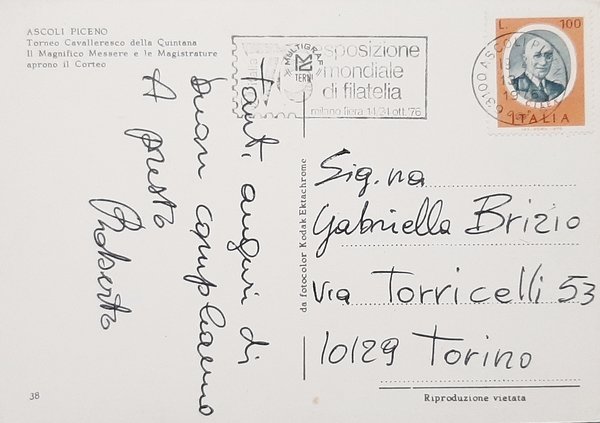 ASCOLI PICENO
Torneo Cavalleresco della Quintana
Il Magnifico Messere e le Magistrature
aprono il Corteo
Tanti auguri di
buon compleanno
A presto
Roberto
38
MULTIGRAF
TERNI
da fotocolor Kodak Ektachrome
sposizione
mondiale
di filatelia
milano fiera 14/24 ott. '76
63100 ASCOLI PI
L. 100
ITALIA
Sig.na
Gabriella Brizio
Via Torricelli 53
10129 Torino
Riproduzione vietata